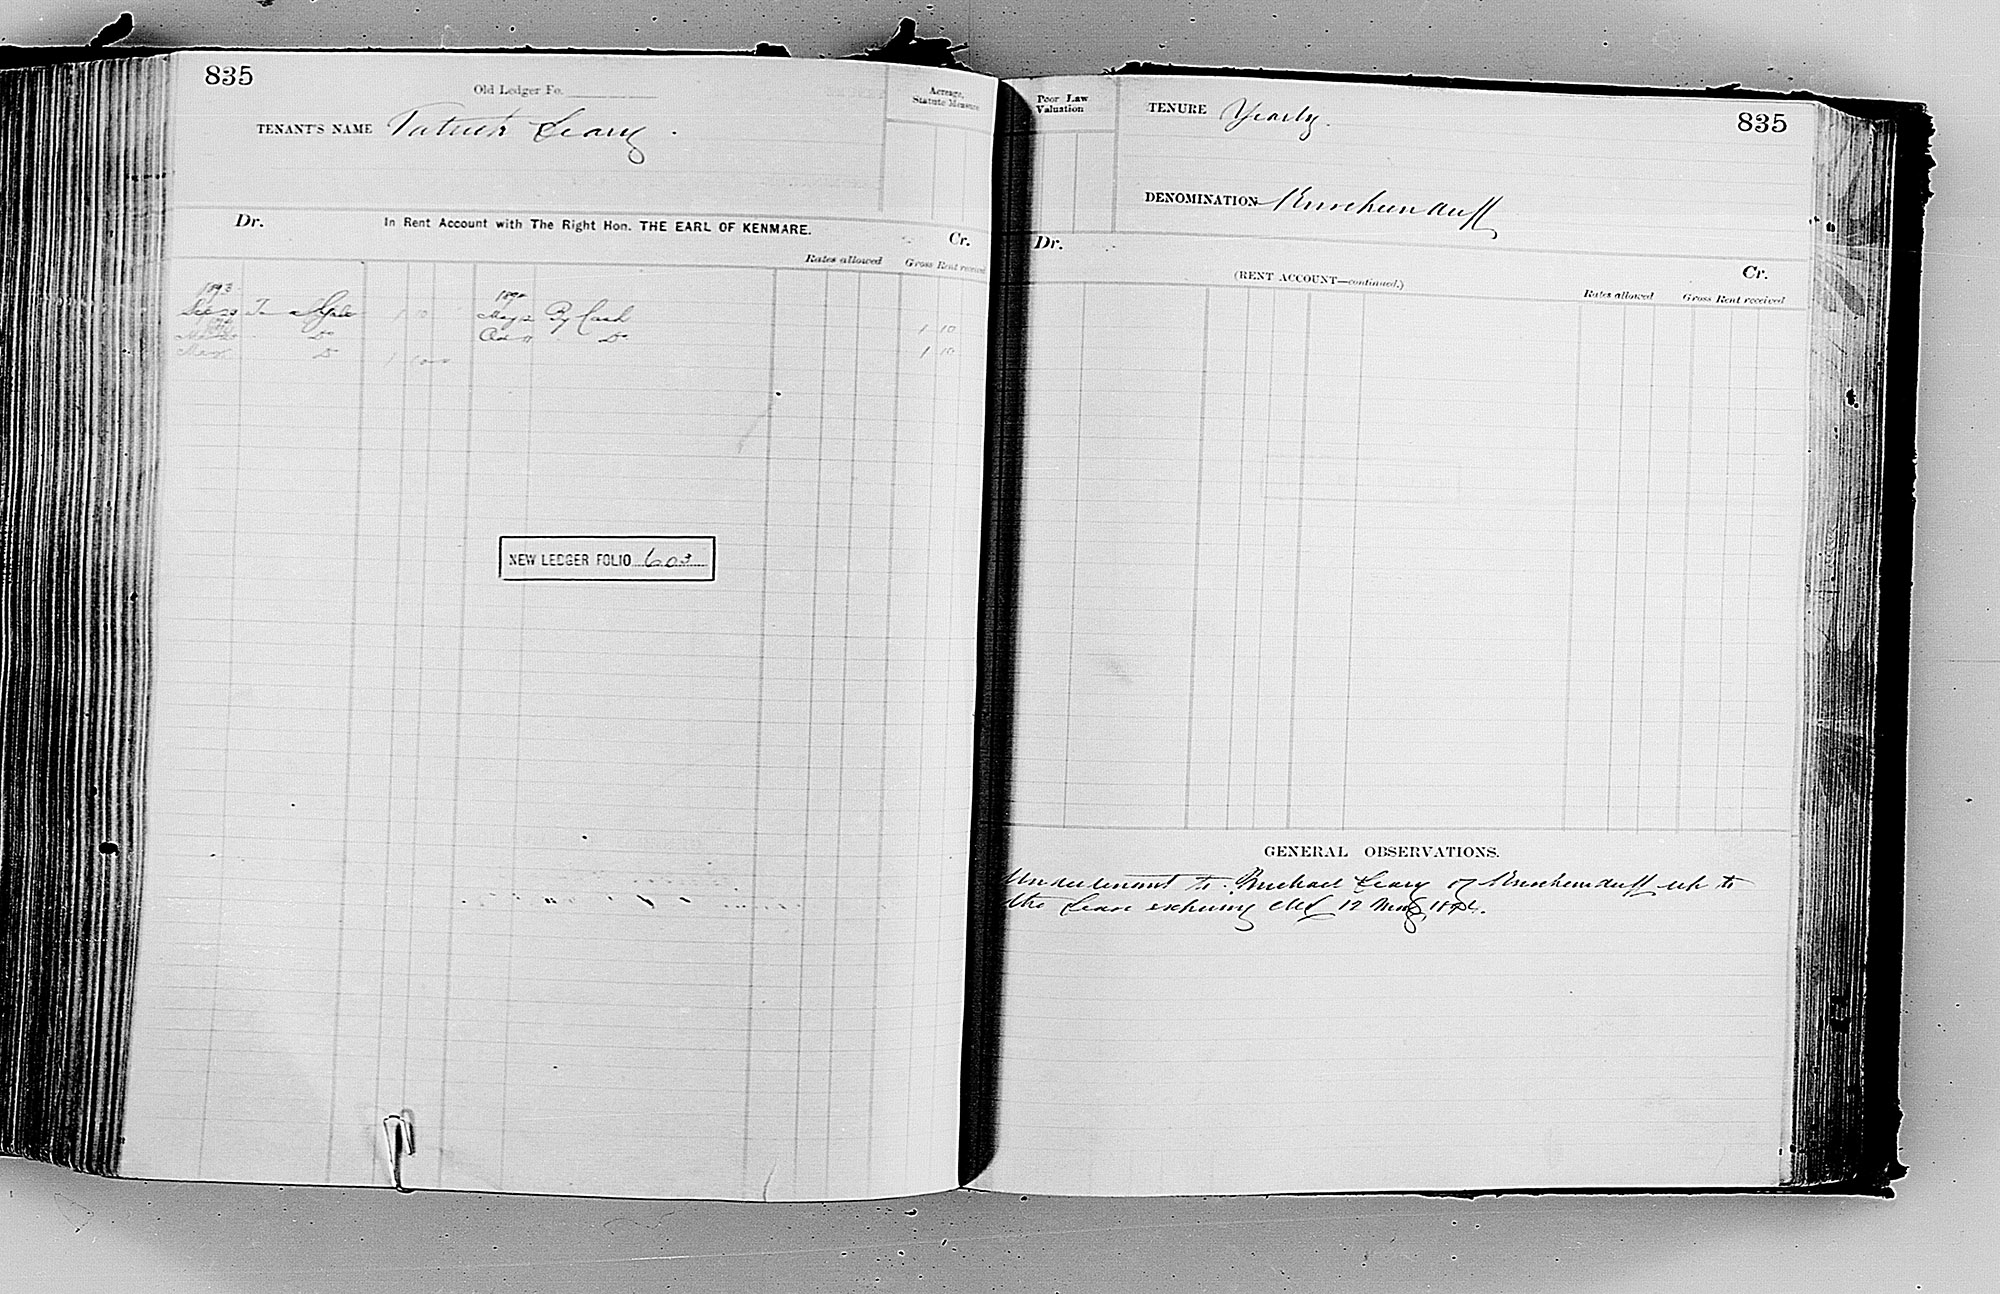 835
Old Ledger Fo.
Acreage, Statute Measure
TENANT'S NAME Patrick Leary.
Dr. In Rent Account with The Right Hon. THE EARL OF KENMARE. Cr.
Rates allowed Gross Rent received
1893 189
To Gale 1 10 May 12 By Cash 1 10
Do Oct 11 Do 1 10
May Do 1 10 0
NEW LEDGER FOLIO 603
Poor Law Valuation
TENURE Yearly.
835
DENOMINATION Knockeenduff
Dr. (RENT ACCOUNT—continued.) Cr.
Rates allowed Gross Rent received
GENERAL OBSERVATIONS.
Undertenant to Michael Leary of Knockeenduff up to
the Lease expiring 12 May,